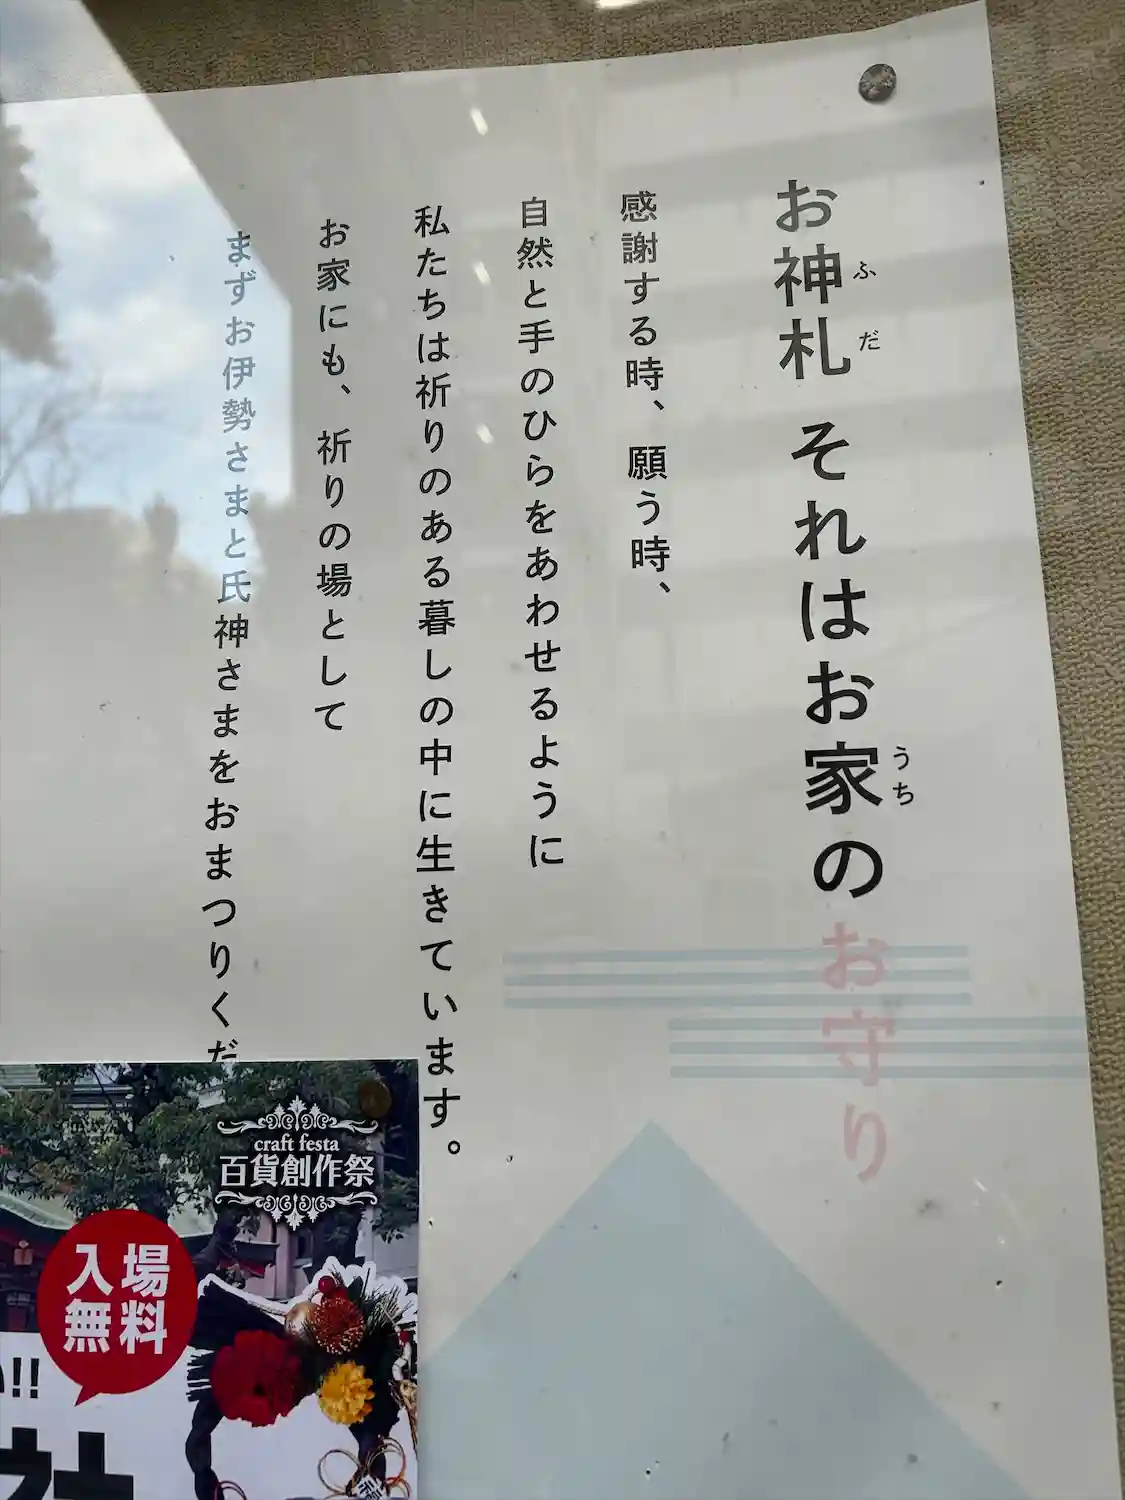 お神札 それはお家のお守り
ふだ
うち
感謝する時、願う時、
自然と手のひらをあわせるように
私たちは祈りのある暮しの中に生きています。
お家にも、祈りの場として
まずお伊勢さまと氏神さまをおまつりくだ
craft festa
百貨創作祭
入場
無料
!!